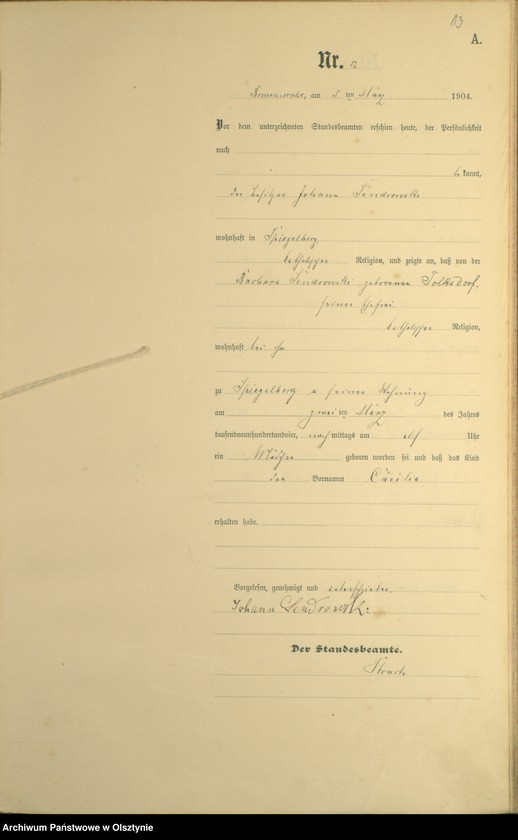 13
A.
Nr. 12
am 5 ten März 1904.
Vor dem unterzeichneten Standesbeamten erschien heute, der Persönlichkeit
nach
be kannt,
der Besitzer Johann Sendrowski
wohnhaft in Spiegelberg
katholischer Religion, und zeigte an, daß von der
Barbara Sendrowski geborenen Tolksdorf,
seiner Ehefrau
katholischer Religion,
wohnhaft bei ihm
zu Spiegelberg in seiner Wohnung
am zwei ten März des Jahres
tausendneunhundertundvier, nach mittags um elf Uhr
ein Mädchen geboren worden sei und daß das Kind
den Vornamen Cäcilia
erhalten habe.
Vorgelesen, genehmigt und unterschrieben
Johann Sendrowski
Der Standesbeamte.
Archiwum Państwowe w Olsztynie